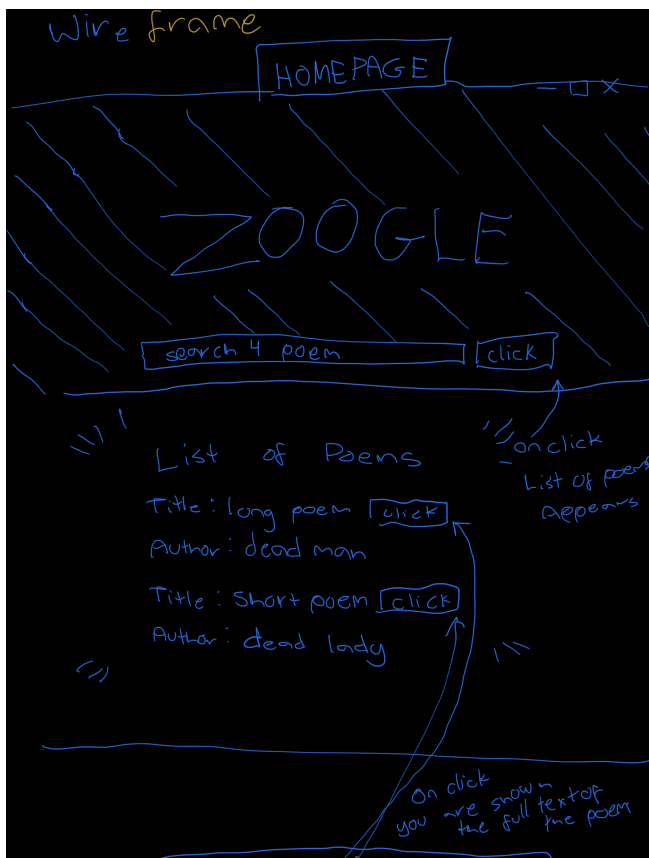 Wire frame
HOMEPAGE
ZOOGLE
search 4 poem
click
on click
List of poems
Appears
List of Poems
Title: long poem click
Author: dead man
Title: Short poem click
Author: dead lady
On click
you are shown
the full text of
the poem